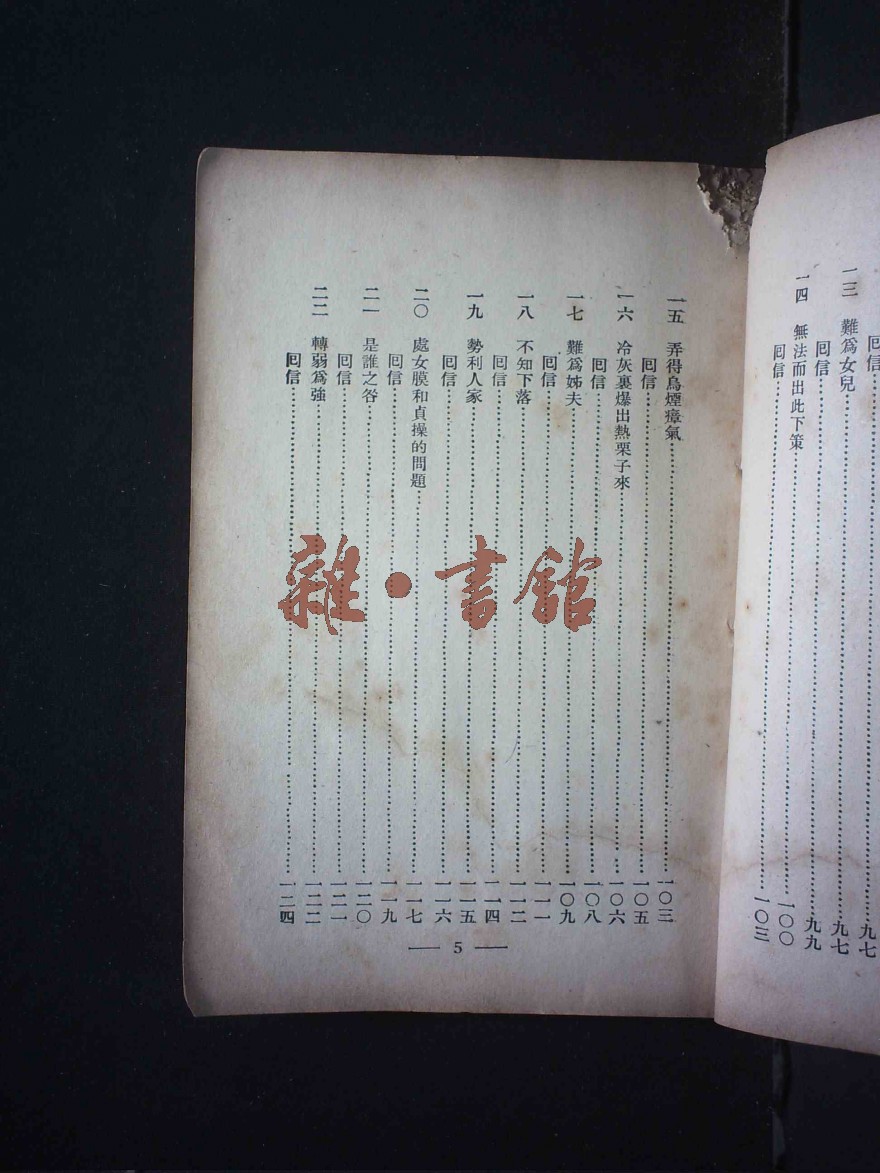 囘信……九七
一三　難爲女兒……九七
囘信……九九
一四　無法而出此下策……一〇〇
囘信……一〇三
一五　弄得烏煙瘴氣……一〇三
囘信……一〇五
一六　冷灰裏爆出熱栗子來……一〇六
囘信……一〇八
一七　難爲姊夫……一〇九
囘信……一一一
一八　不知下落……一一二
囘信……一一四
一九　勢利人家……一一五
囘信……一一六
二〇　處女膜和貞操的問題……一一七
囘信……一一九
二一　是誰之咎……一二〇
囘信……一二一
二二　轉弱爲強……一二二
囘信……一二四
— 5 —
雜·書館